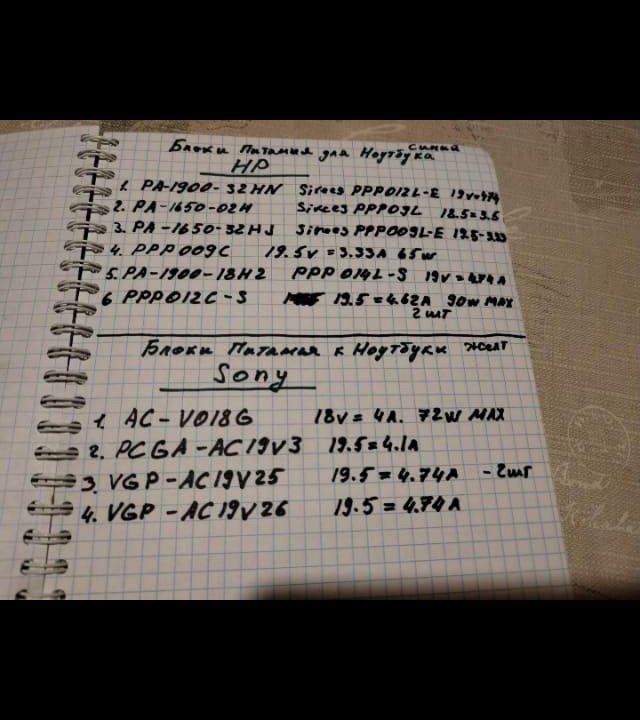 Блоки Питания для Ноутбука синий
HP
1. PA-1900-32HN Sirees PPP012L-E 19v=474
2. PA-1650-02H Sirees PPP09L 18.5=3.5
3. PA-1650-32HJ Sirees PPP009L-E 19.5-3.33
4. PPP009C 19.5v=3.33A 65w
5. PA-1900-18H2 PPP014L-S 19v=4.74A
6 PPP012C-S 19.5=4.62A 90w MAX
2 шт
Блоки Питания к Ноутбуки желт
Sony
1. AC-V018G 18v=4A. 72w MAX
2. PCGA-AC19V3 19.5=4.1A
3. VGP-AC19V25 19.5=4.74A -2шт
4. VGP-AC19V26 19.5=4.74A